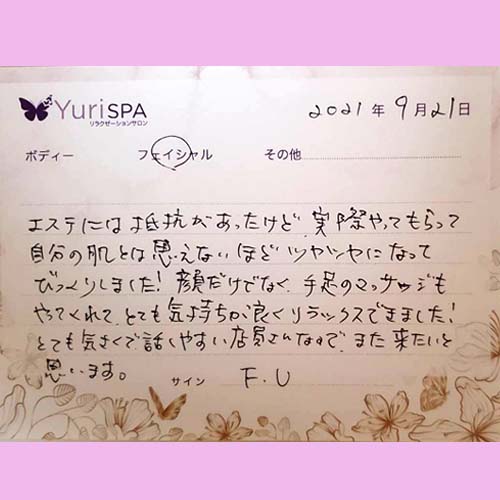 YuriSPA
リラクゼーションサロン
2021年9月21日
ボディー フェイシャル その他
エステには抵抗があったけど、実際やってもらって
自分の肌とは思えないほどツヤツヤになって
びっくりしました!顔だけでなく、手足のマッサージも
やってくれて、とても気持ちが良くリラックスできました!
とても気さくで話しやすい店員さんなので、また来たいと
思います。
サイン F.U